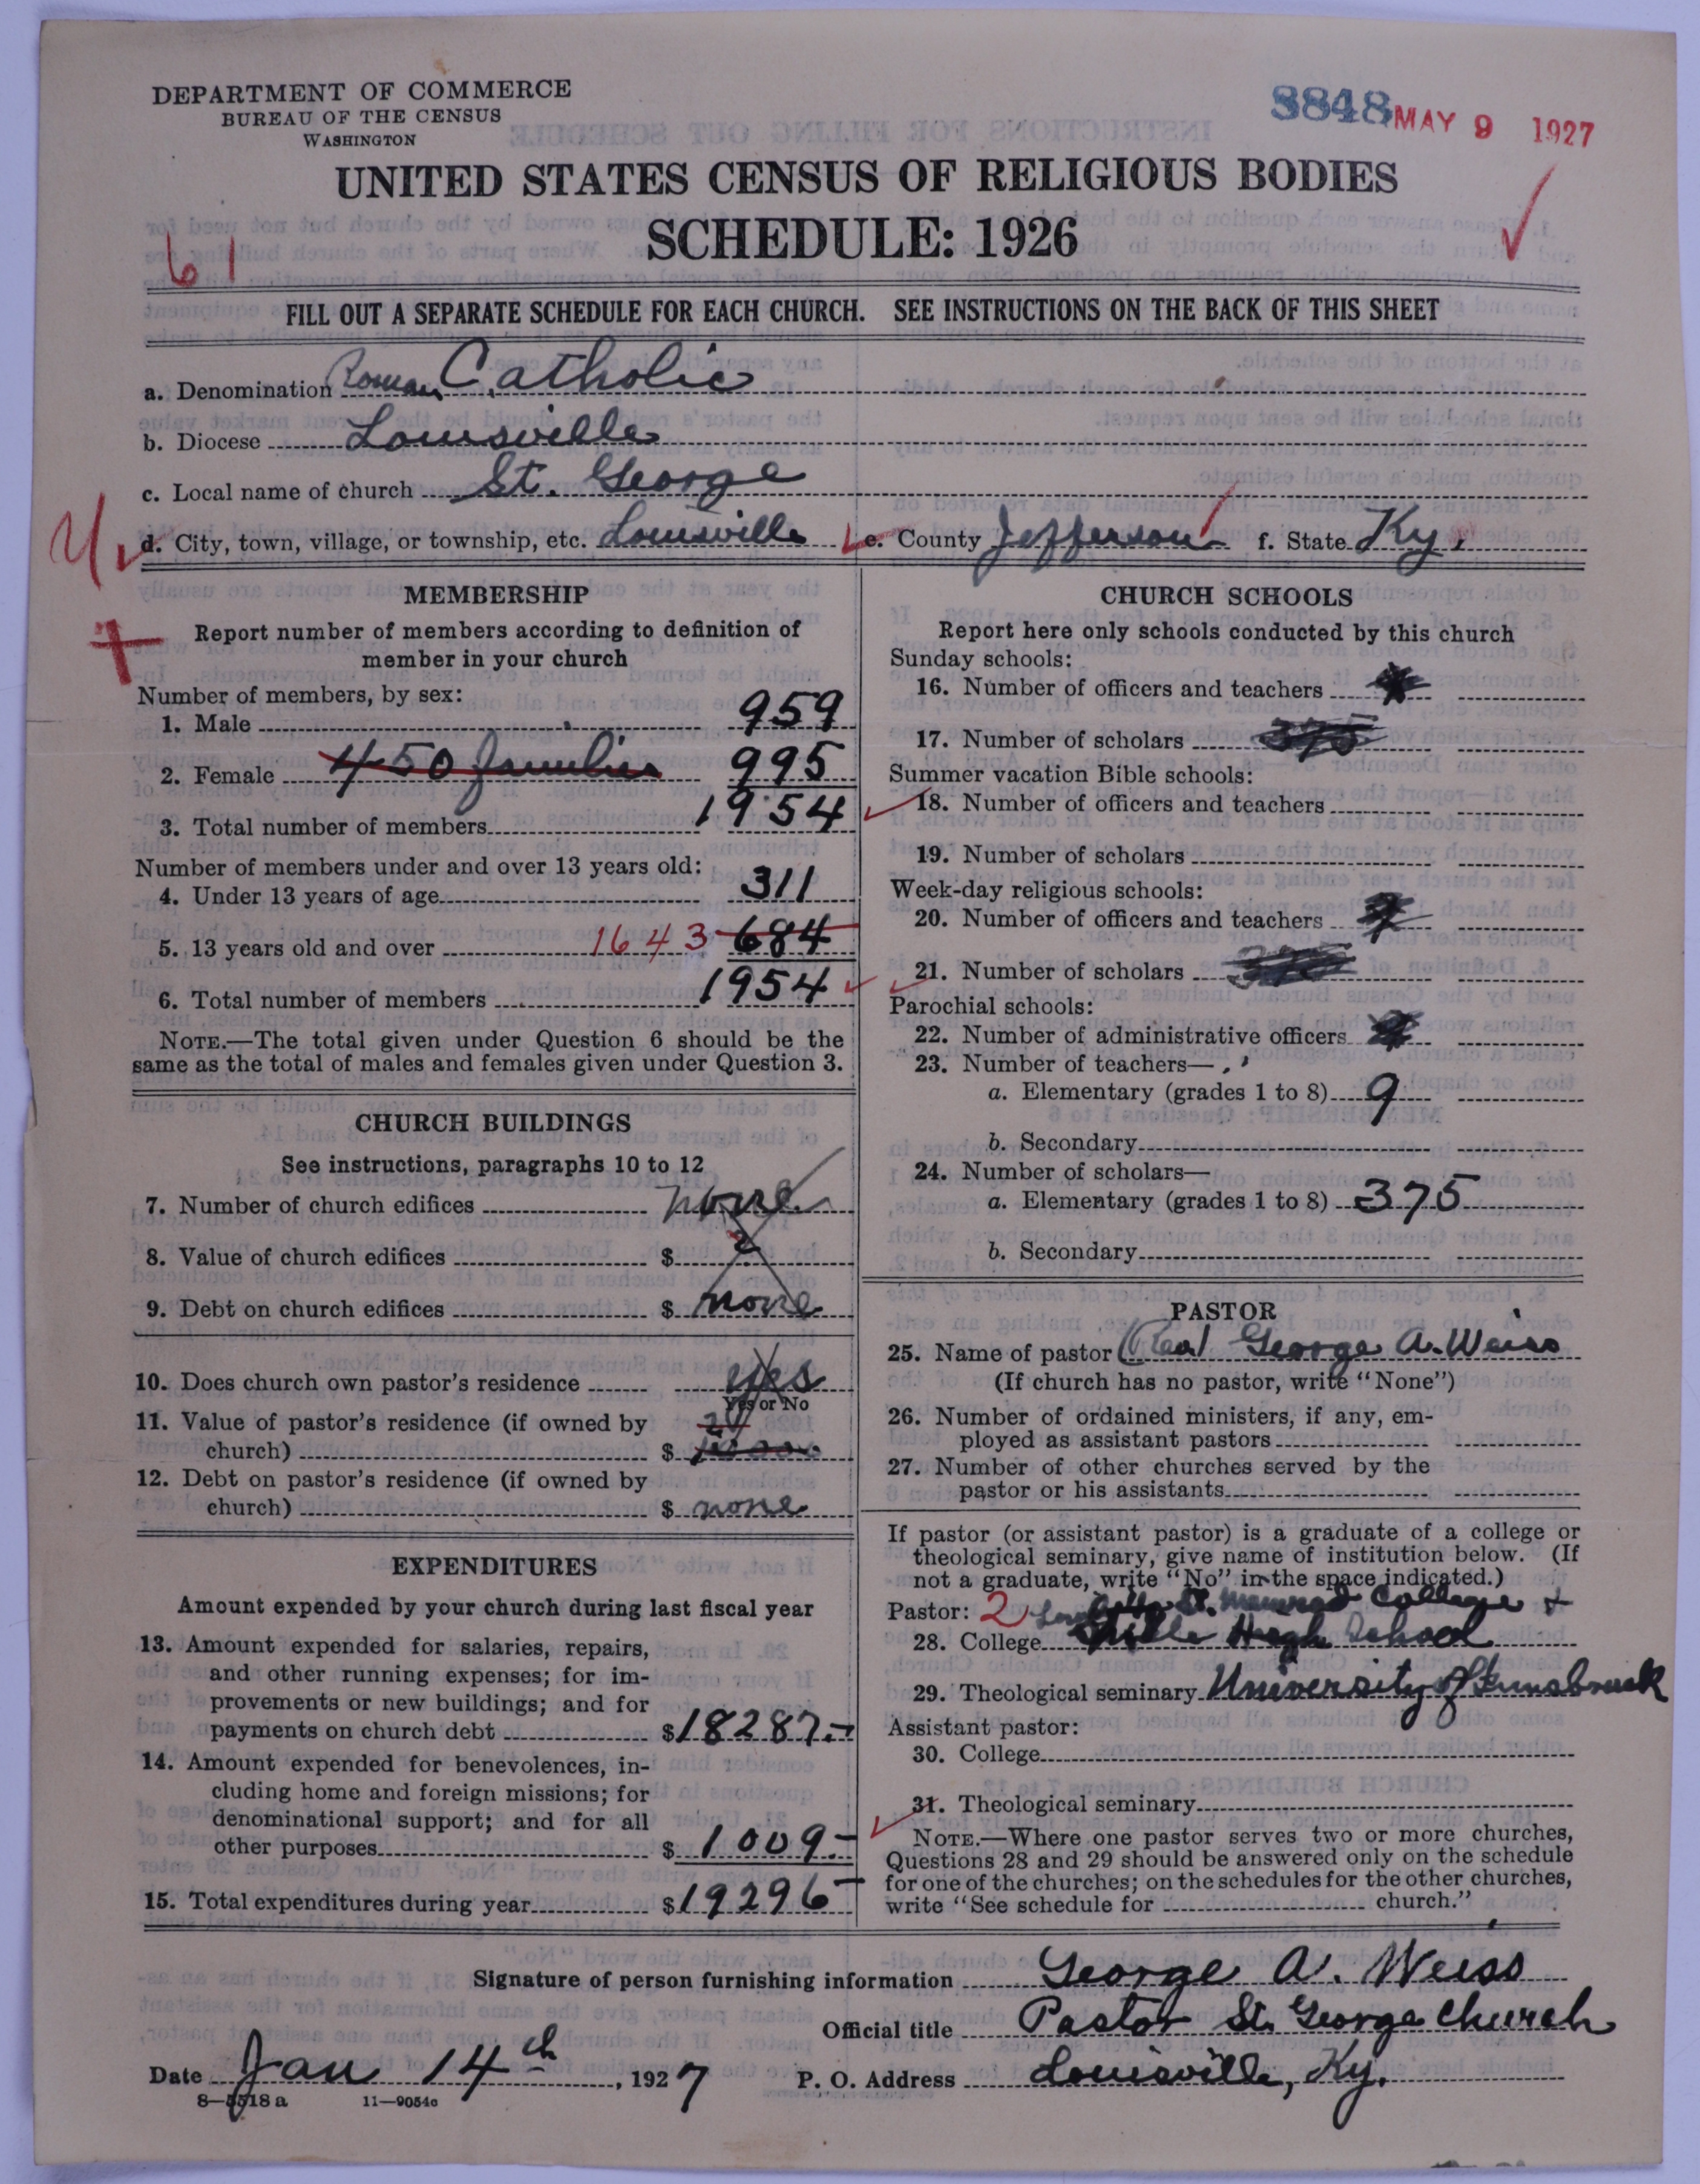 DEPARTMENT OF COMMERCE
BUREAU OF THE CENSUS
WASHINGTON
3848 MAY 9 1927
UNITED STATES CENSUS OF RELIGIOUS BODIES
SCHEDULE: 1926
61
FILL OUT A SEPARATE SCHEDULE FOR EACH CHURCH. SEE INSTRUCTIONS ON THE BACK OF THIS SHEET
a. Denomination Roman Catholic
b. Diocese Louisville
c. Local name of church St. George
d. City, town, village, or township, etc. Louisville e. County Jefferson f. State Ky.
MEMBERSHIP
Report number of members according to definition of
member in your church
Number of members, by sex:
1. Male 959
2. Female 450 families 995
3. Total number of members 1954
Number of members under and over 13 years old:
4. Under 13 years of age 311
5. 13 years old and over 1643 684
6. Total number of members 1954
NOTE.—The total given under Question 6 should be the
same as the total of males and females given under Question 3.
CHURCH BUILDINGS
See instructions, paragraphs 10 to 12
7. Number of church edifices none
8. Value of church edifices $
9. Debt on church edifices $ none
10. Does church own pastor's residence yes
Yes or No
11. Value of pastor's residence (if owned by
church) $
12. Debt on pastor's residence (if owned by
church) $ none
EXPENDITURES
Amount expended by your church during last fiscal year
13. Amount expended for salaries, repairs,
and other running expenses; for im-
provements or new buildings; and for
payments on church debt $18287.-
14. Amount expended for benevolences, in-
cluding home and foreign missions; for
denominational support; and for all
other purposes $ 1009.-
15. Total expenditures during year $19296-
CHURCH SCHOOLS
Report here only schools conducted by this church
Sunday schools:
16. Number of officers and teachers
17. Number of scholars 375
Summer vacation Bible schools:
18. Number of officers and teachers
19. Number of scholars
Week-day religious schools:
20. Number of officers and teachers
21. Number of scholars
Parochial schools:
22. Number of administrative officers
23. Number of teachers—
a. Elementary (grades 1 to 8) 9
b. Secondary
24. Number of scholars—
a. Elementary (grades 1 to 8) 375
b. Secondary
PASTOR
25. Name of pastor (Rev) George A. Weiss
(If church has no pastor, write "None")
26. Number of ordained ministers, if any, em-
ployed as assistant pastors
27. Number of other churches served by the
pastor or his assistants
If pastor (or assistant pastor) is a graduate of a college or
theological seminary, give name of institution below. (If
not a graduate, write "No" in the space indicated.)
Pastor: 2 St. Meinrad College +
28. College High School
29. Theological seminary University of Innsbruck
Assistant pastor:
30. College
31. Theological seminary
NOTE.—Where one pastor serves two or more churches,
Questions 28 and 29 should be answered only on the schedule
for one of the churches; on the schedules for the other churches,
write "See schedule for church."
Signature of person furnishing information George A. Weiss
Official title Pastor St. George Church
Date Jan 14th, 1927 P. O. Address Louisville, Ky.
8—5518a 11—9054c